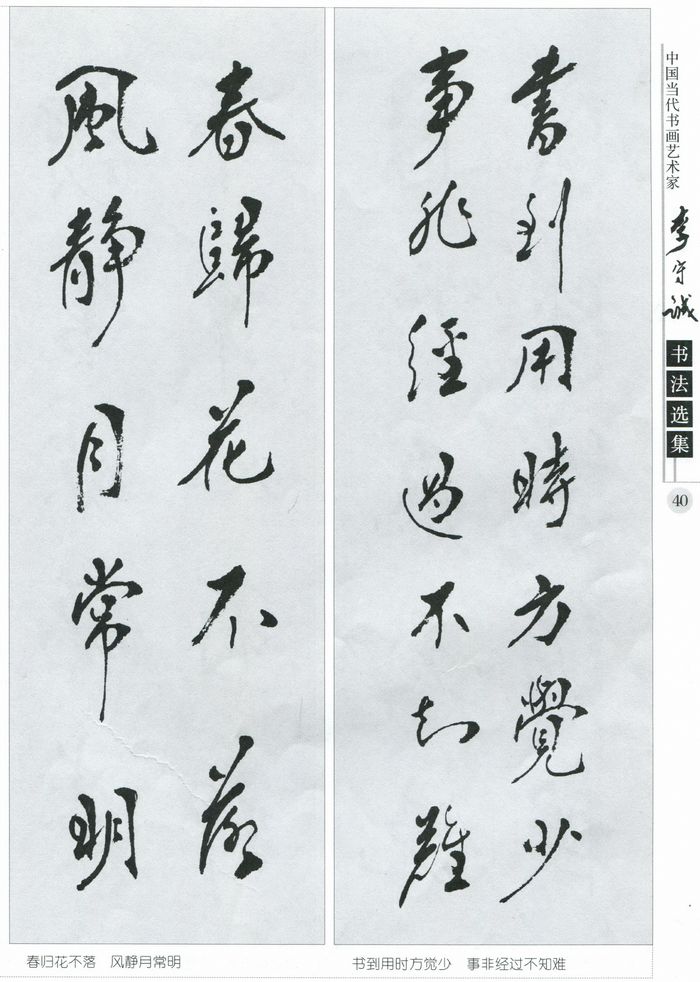 中国当代书画艺术家
李守诚
书法选集
40
書到用時方覺少
事非經過不知難
春歸花不落
風静月常明
书到用时方觉少 事非经过不知难
春归花不落 风静月常明